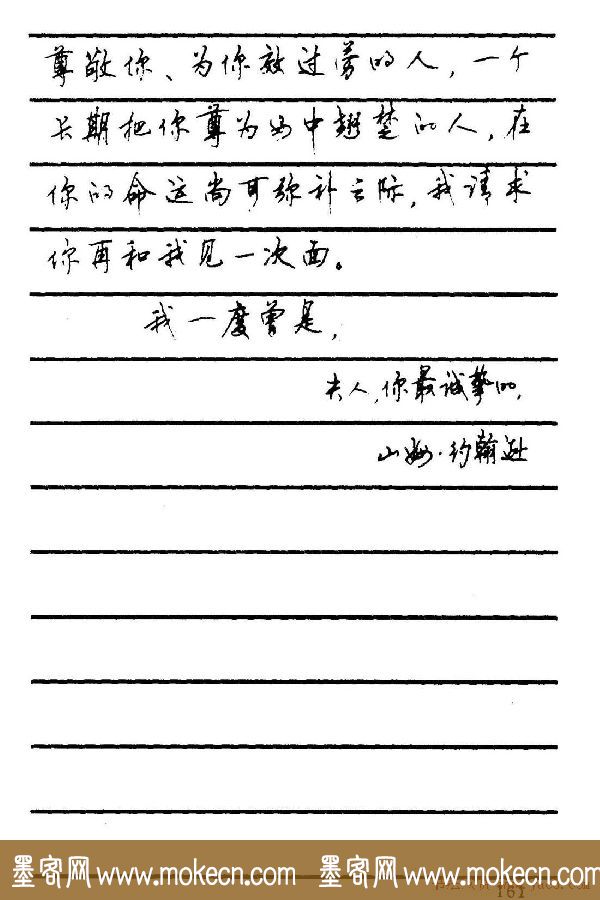 尊敬你、为你效过劳的人，一个
长期把你尊为女中翘楚的人，在
你的命运尚可弥补之际，我请求
你再和我见一次面。
我一度曾是，
夫人，你最诚挚的，
山姆·约翰逊
墨客网 www.mokecn.com 墨客网 www.mokecn.com
161